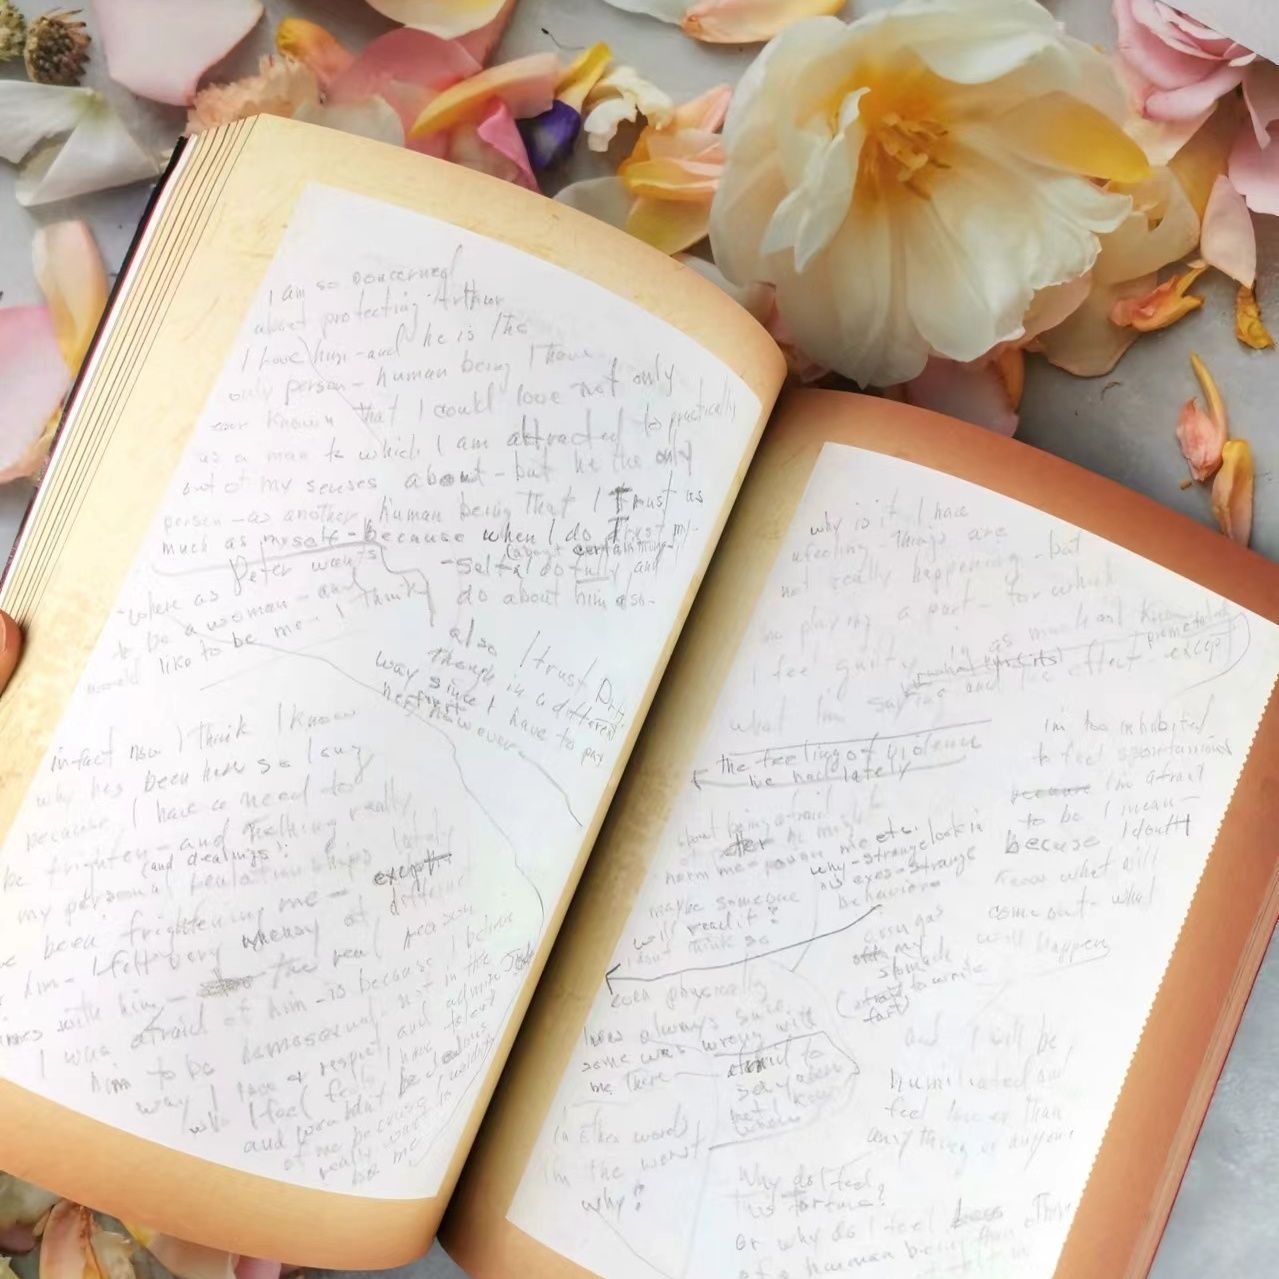 I am so concerned
about protecting Arthur
I love him - and he is the
only person - human being I have
ever known that I could love not only
as a man to which I am attracted to practically
out of my senses about - but he the only
person - as another human being that I trust as
much as myself - because when I do trust my-
(about certain things)
- self I do fully and
do about him also -
where as Peter wants
to be a woman - and
would like to be me - I think
also I trust
though in a different
way since I have to pay
her however
infact now I think I know
why he's been here so long
because I have a need to
be frighten - and nothing really
(and dealings)
my personal relationships lately
been frightening me - except
him - I felt very uneasy at different
times with him - the real reason
I was afraid of him - is because I believe
him to be homosexual - not in the
way I love & respect and admire
who I feel feels I have talent
and wouldn't be jealous
of me because I wouldn't
really want to
be me
why is it I have
a feeling things are
not really happening - but
I'm playing a part - for which
I feel guilty
what I'm saying and the effect - except
the feeling of violence
I've had lately
about being afraid
of Peter he might
harm me poison me etc.
why - strange look in
his eyes - strange
behavior
maybe someone
will read it?
I don't think so
I'm too inhibited
to feel spontaneous
because I'm afraid
to be I mean -
because I don't
know what will
come out - what
will happen
as in gas
my
stomach
(afraid to write
fart)
even physically
I have always
something was wrong with
me there
afraid to
say
but I know
where
in other words
I'm the worst
why?
and I will be
humiliated and
feel lower than
anything or anyone
Why do I feel
this torture?
or why do I feel less
of a human being than others